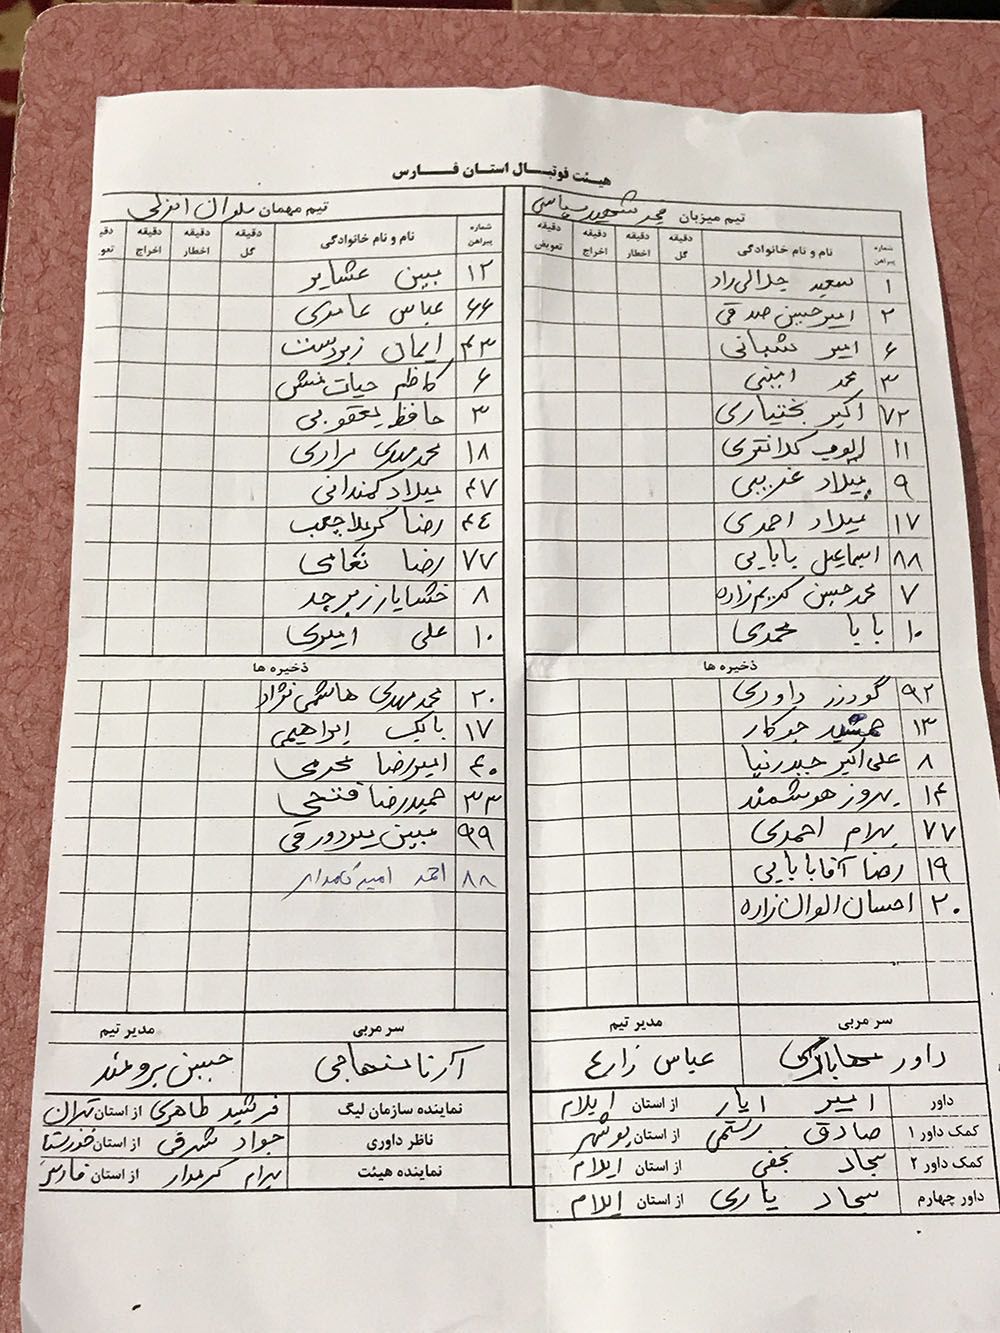 هیئت فوتبال استان فارس
تیم میزبان فجر شهید سپاسی
شماره پیراهن نام و نام خانوادگی دقیقه گل دقیقه اخطار دقیقه اخراج دقیقه تعویض
۱ سعید جلالی راد
۲ امیرحسین صدقی
۶ امیر شبانی
۳ محمد امینی
۷۲ اکبر بختیاری
۱۱ ایوب کلانتری
۹ میلاد غریبی
۱۷ میلاد احمدی
۸۸ اسماعیل بابایی
۷ محمدحسین کریم زاده
۱۰ بابا محمدی
ذخیره ها
۹۲ گودرز داوری
۱۳ جمشید جوکار
۸ علی اکبر حیدرنیا
۱۴ بهروز هوشمند
۷۷ بهرام احمدی
۱۹ رضا آقابابایی
۲۰ احسان الوان زاده
سر مربی مدیر تیم
داور مهابادی عباس زارع
داور امیر ایار از استان ایلام
کمک داور ۱ صادق رستمی از استان بوشهر
کمک داور ۲ سجاد نجفی از استان ایلام
داور چهارم سجاد یاری از استان ایلام
تیم مهمان ملوان انزلی
شماره پیراهن نام و نام خانوادگی دقیقه گل دقیقه اخطار دقیقه اخراج
۱۲ مبین عشایر
۶۶ عباس عامری
۴۳ ایمان زبردست
۶ کاظم حیات منش
۳ حافظ یعقوبی
۱۸ محمدمهدی مرادی
۴۷ میلاد کمندانی
۴۴ رضا کربلا
۷۷ رضا نگامی
۸ خشایار زبرجد
۱۰ علی امیری
ذخیره ها
۲۰ محمدمهدی هاشمی نژاد
۱۷ بابک ابراهیمی
۴۰ امیررضا محرمی
۳۳ حمیدرضا فتحی
۹۹ مبین میردورقی
۸۸ احمد امیر کامدار
سر مربی مدیر تیم
آکرنا منهاجی حسین برومند
نماینده سازمان لیگ فرشید طاهری از استان تهران
ناظر داوری جواد شرقی از استان خوزستا
نماینده هیئت بهرام کرمدار از استان فارس